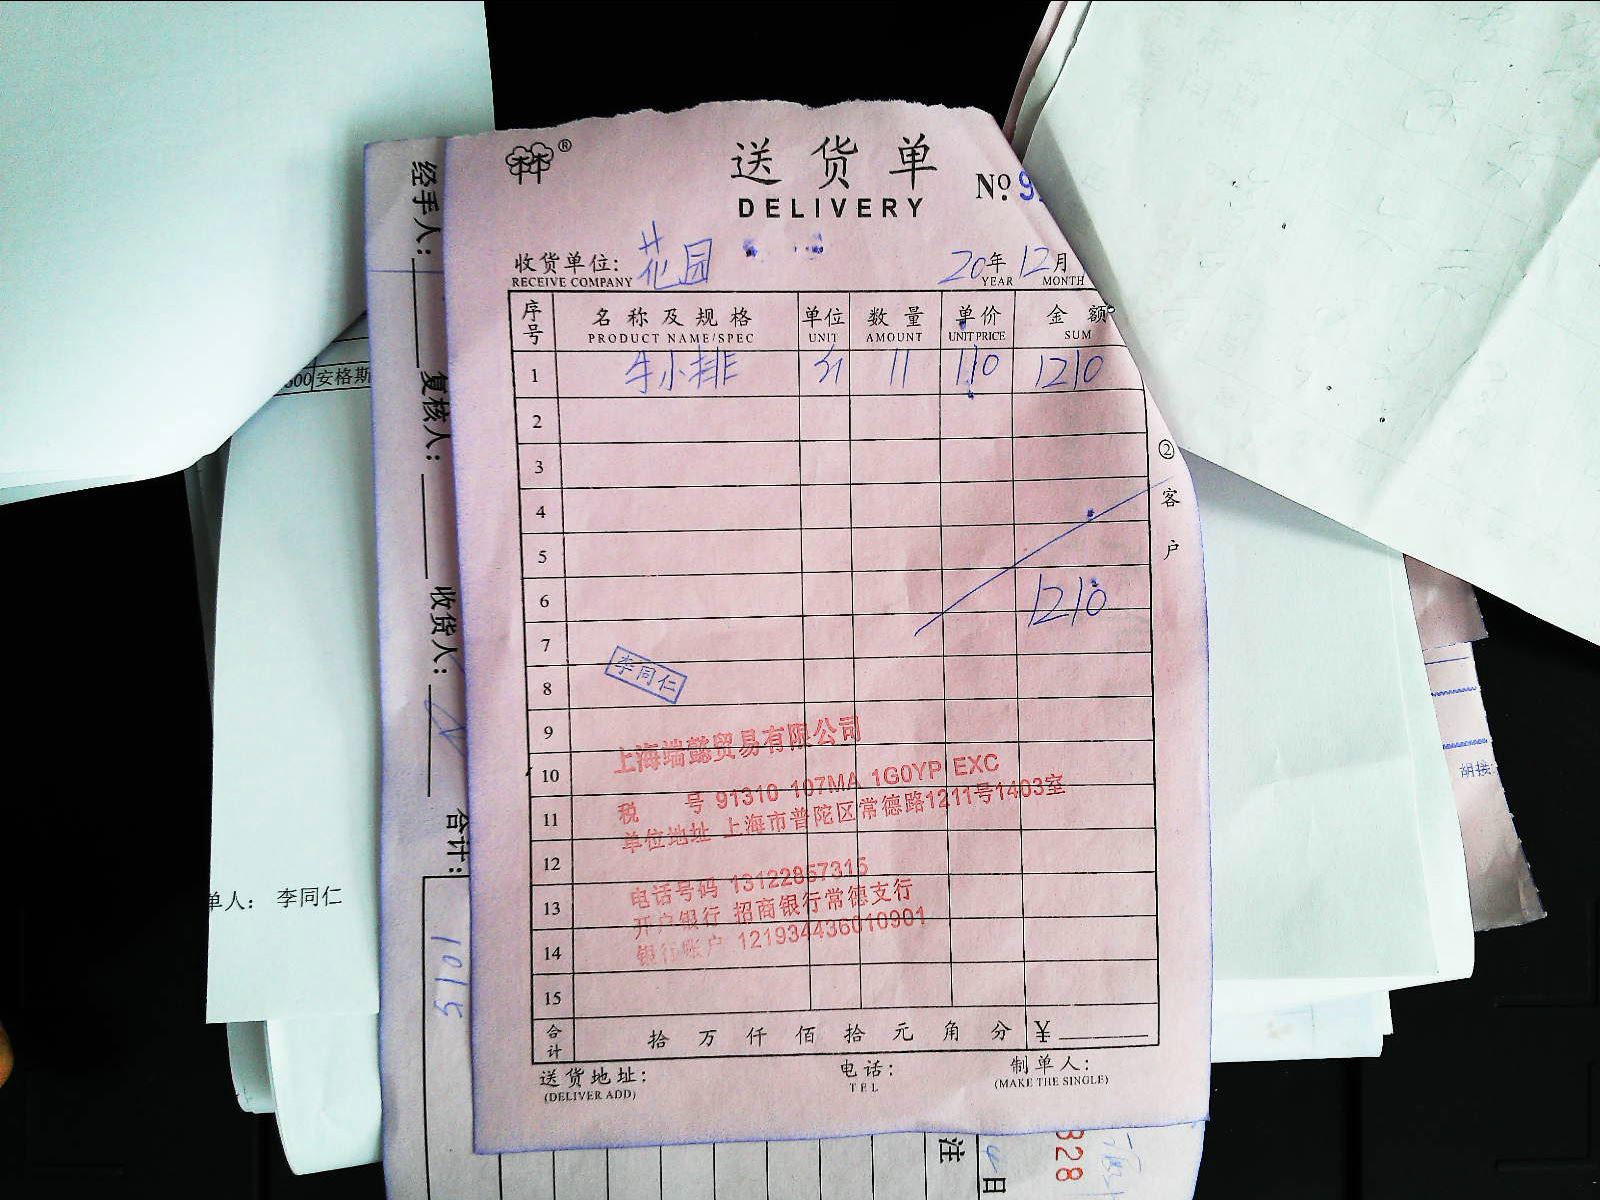 送货单
DELIVERY
No. 9
收货单位: 花园
RECEIVE COMPANY
20年 12月
YEAR MONTH
序号 名称及规格 单位 数量 单价 金额
PRODUCT NAME/SPEC UNIT AMOUNT UNIT PRICE SUM
1 牛小排 11 110 1210
2
3
4
5
6 1210
7
8
9
10
11
12
13
14
15
②客户
李同仁
上海端懿贸易有限公司
税 号 91310 107MA 1G0YP EXC
单位地址 上海市普陀区常德路1211号1403室
电话号码 13122857315
开户银行 招商银行常德支行
银行账户 121934436010901
合计 拾 万 仟 佰 拾 元 角 分 ¥
送货地址:
(DELIVER ADD)
电话:
TEL
制单人:
(MAKE THE SINGLE)
经手人:
复核人:
收货人:
合计:
安格斯
单人: 李同仁
注
日
328